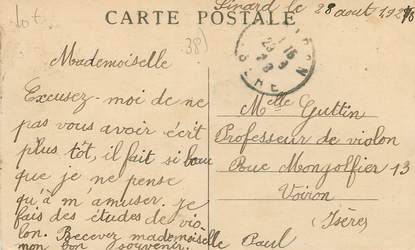 Sinard le 28 août 1928
CARTE POSTALE
Lot.
38)
Mademoiselle
Excusez-moi de ne
pas vous avoir écrit
plus tôt, il fait si beau
que je ne pense
qu'à m'amuser. je
fais des études de vio-
lon. Recevez mademoiselle
mon bon souvenir. Paul
VOIRON
ISERE
Melle Guttin
Professeur de violon
Rue Mongolfier 13
Voiron
(Isère)